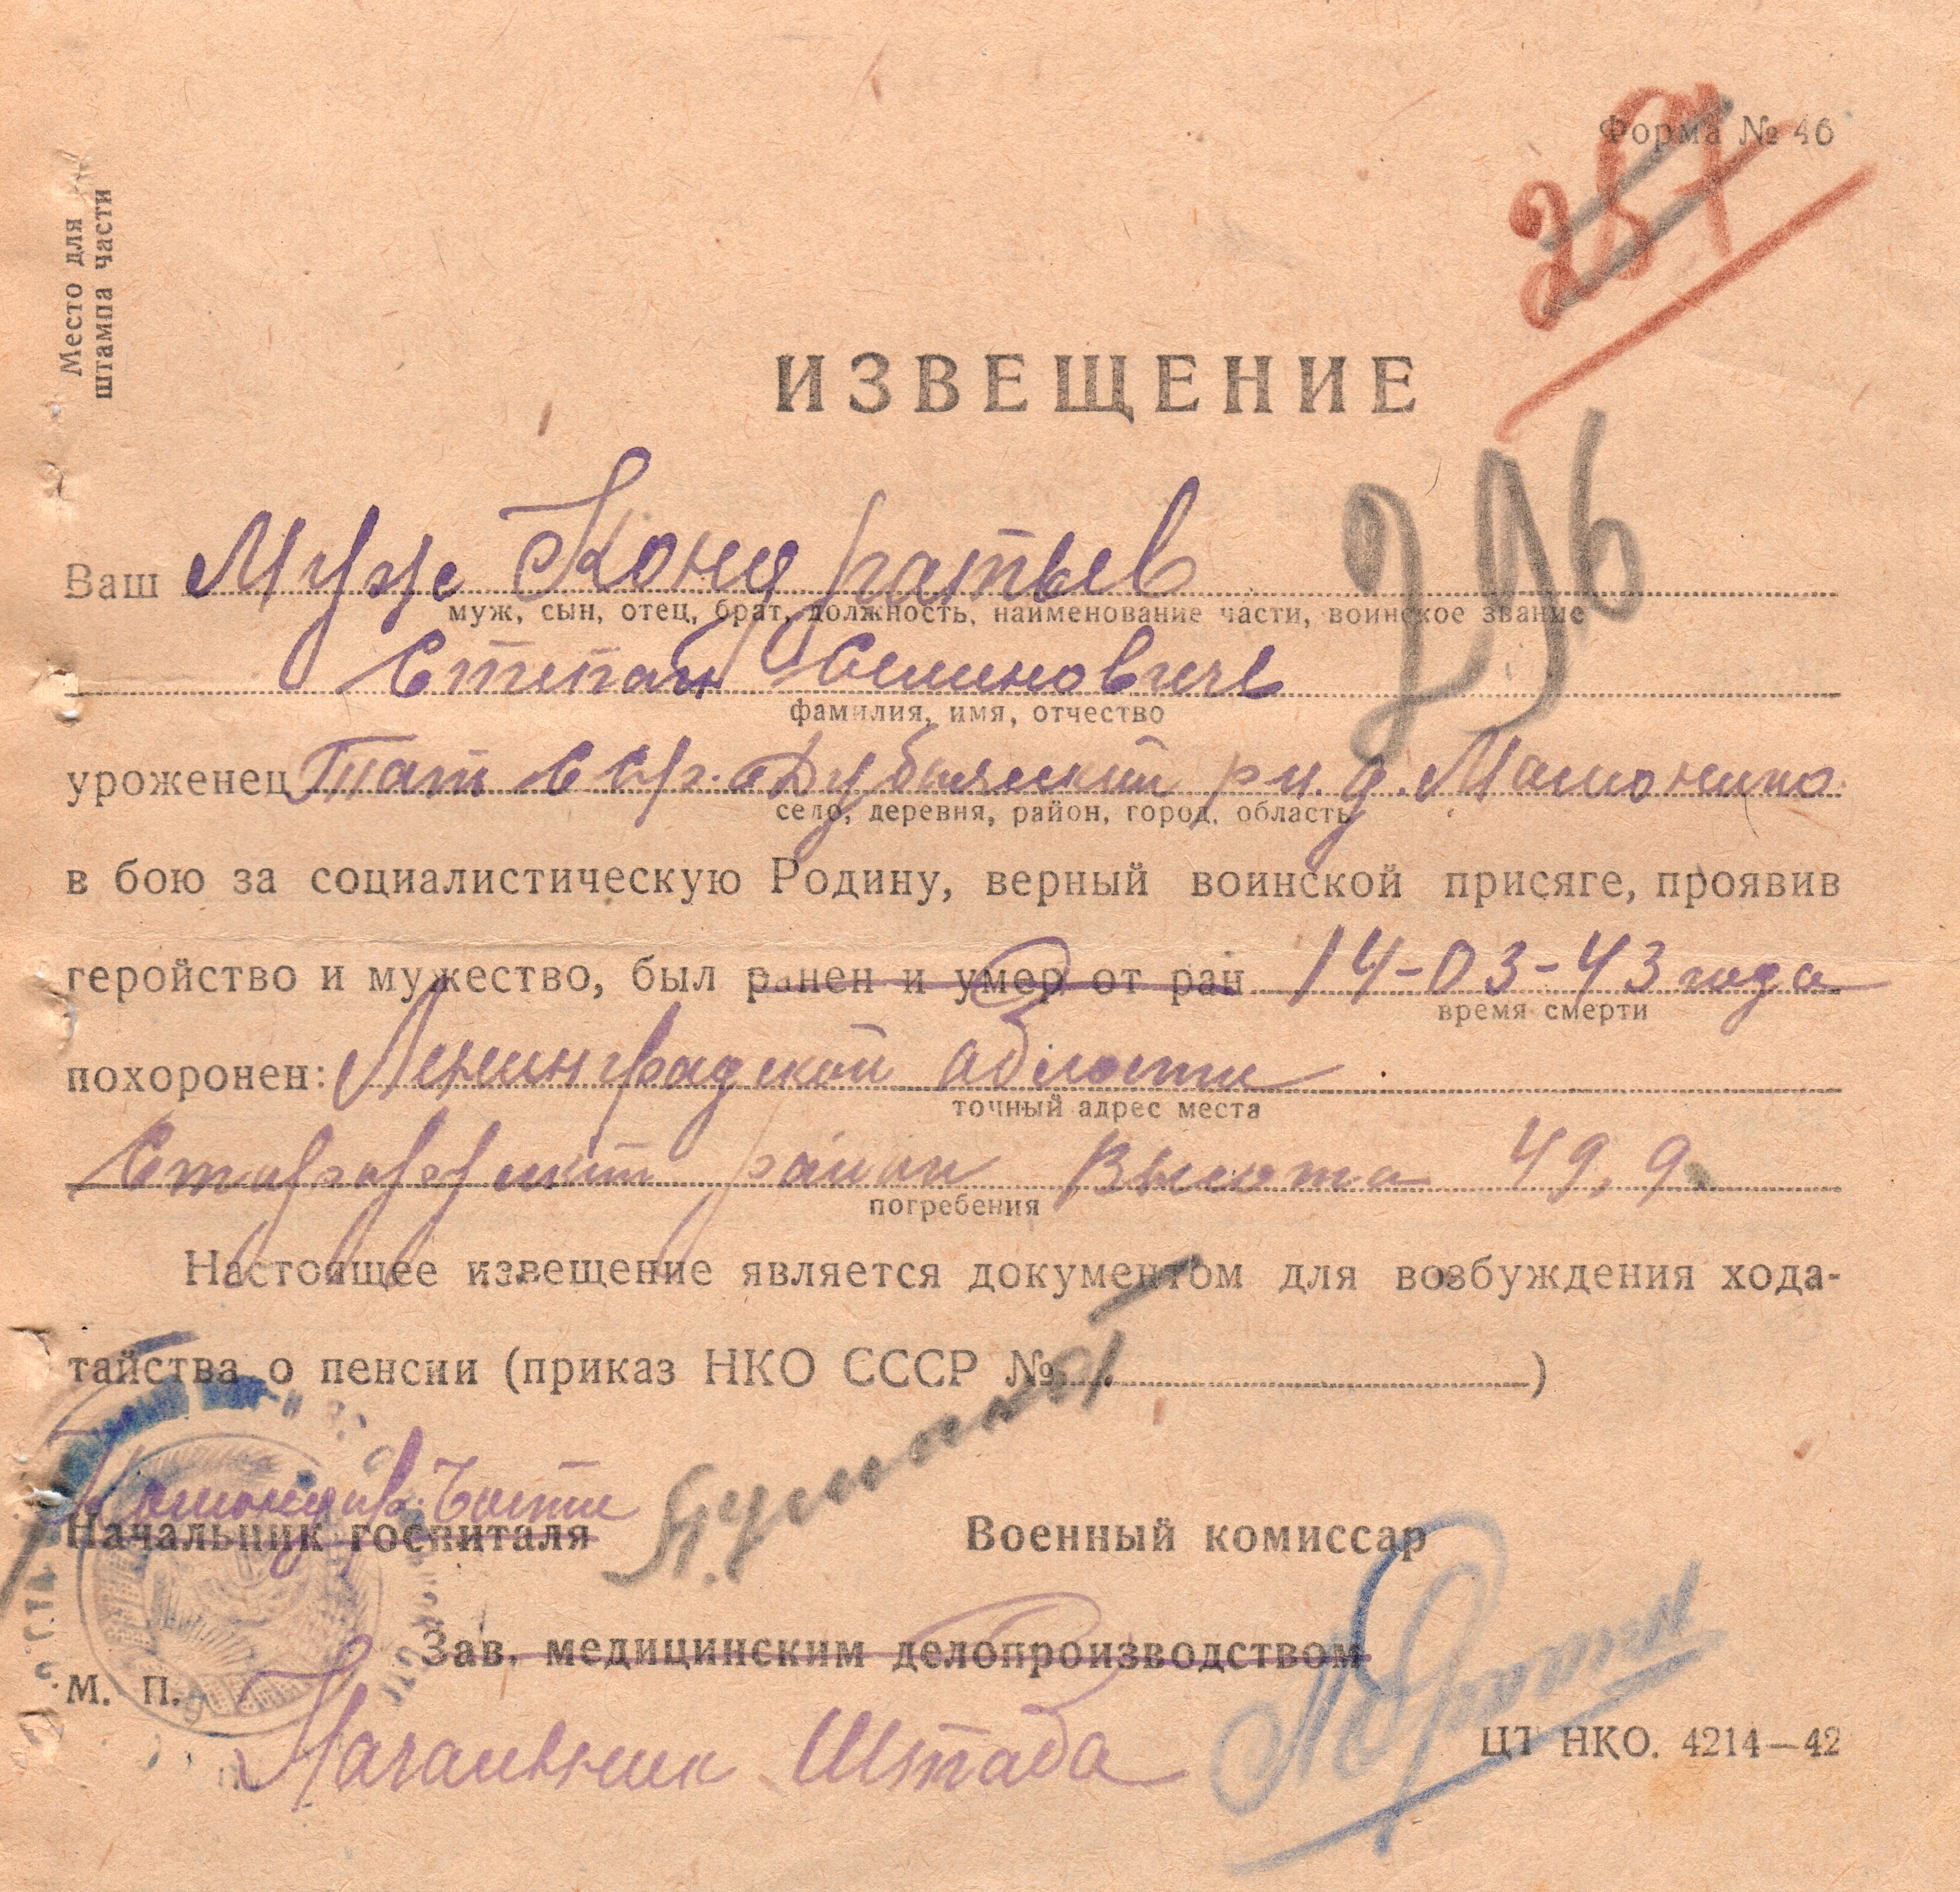 Форма № 46
257
Место для
штампа части
ИЗВЕЩЕНИЕ
296
Ваш Муж Кондратьев
муж, сын, отец, брат, должность, наименование части, воинское звание
Степан
фамилия, имя, отчество
уроженец Тат ССР. рн. д.
село, деревня, район, город, область
в бою за социалистическую Родину, верный воинской присяге, проявив
геройство и мужество, был ранен и умер от ран 14-03-43 года
время смерти
похоронен: Ленинградской области
точный адрес места
район Высота 49,9
погребения
Настоящее извещение является документом для возбуждения хода-
тайства о пенсии (приказ НКО СССР № )
Командир. Части
Начальник госпиталя
Военный комиссар
Зав. медицинским делопроизводством
М. П.
Начальник Штаба
ЦТ НКО. 4214—42